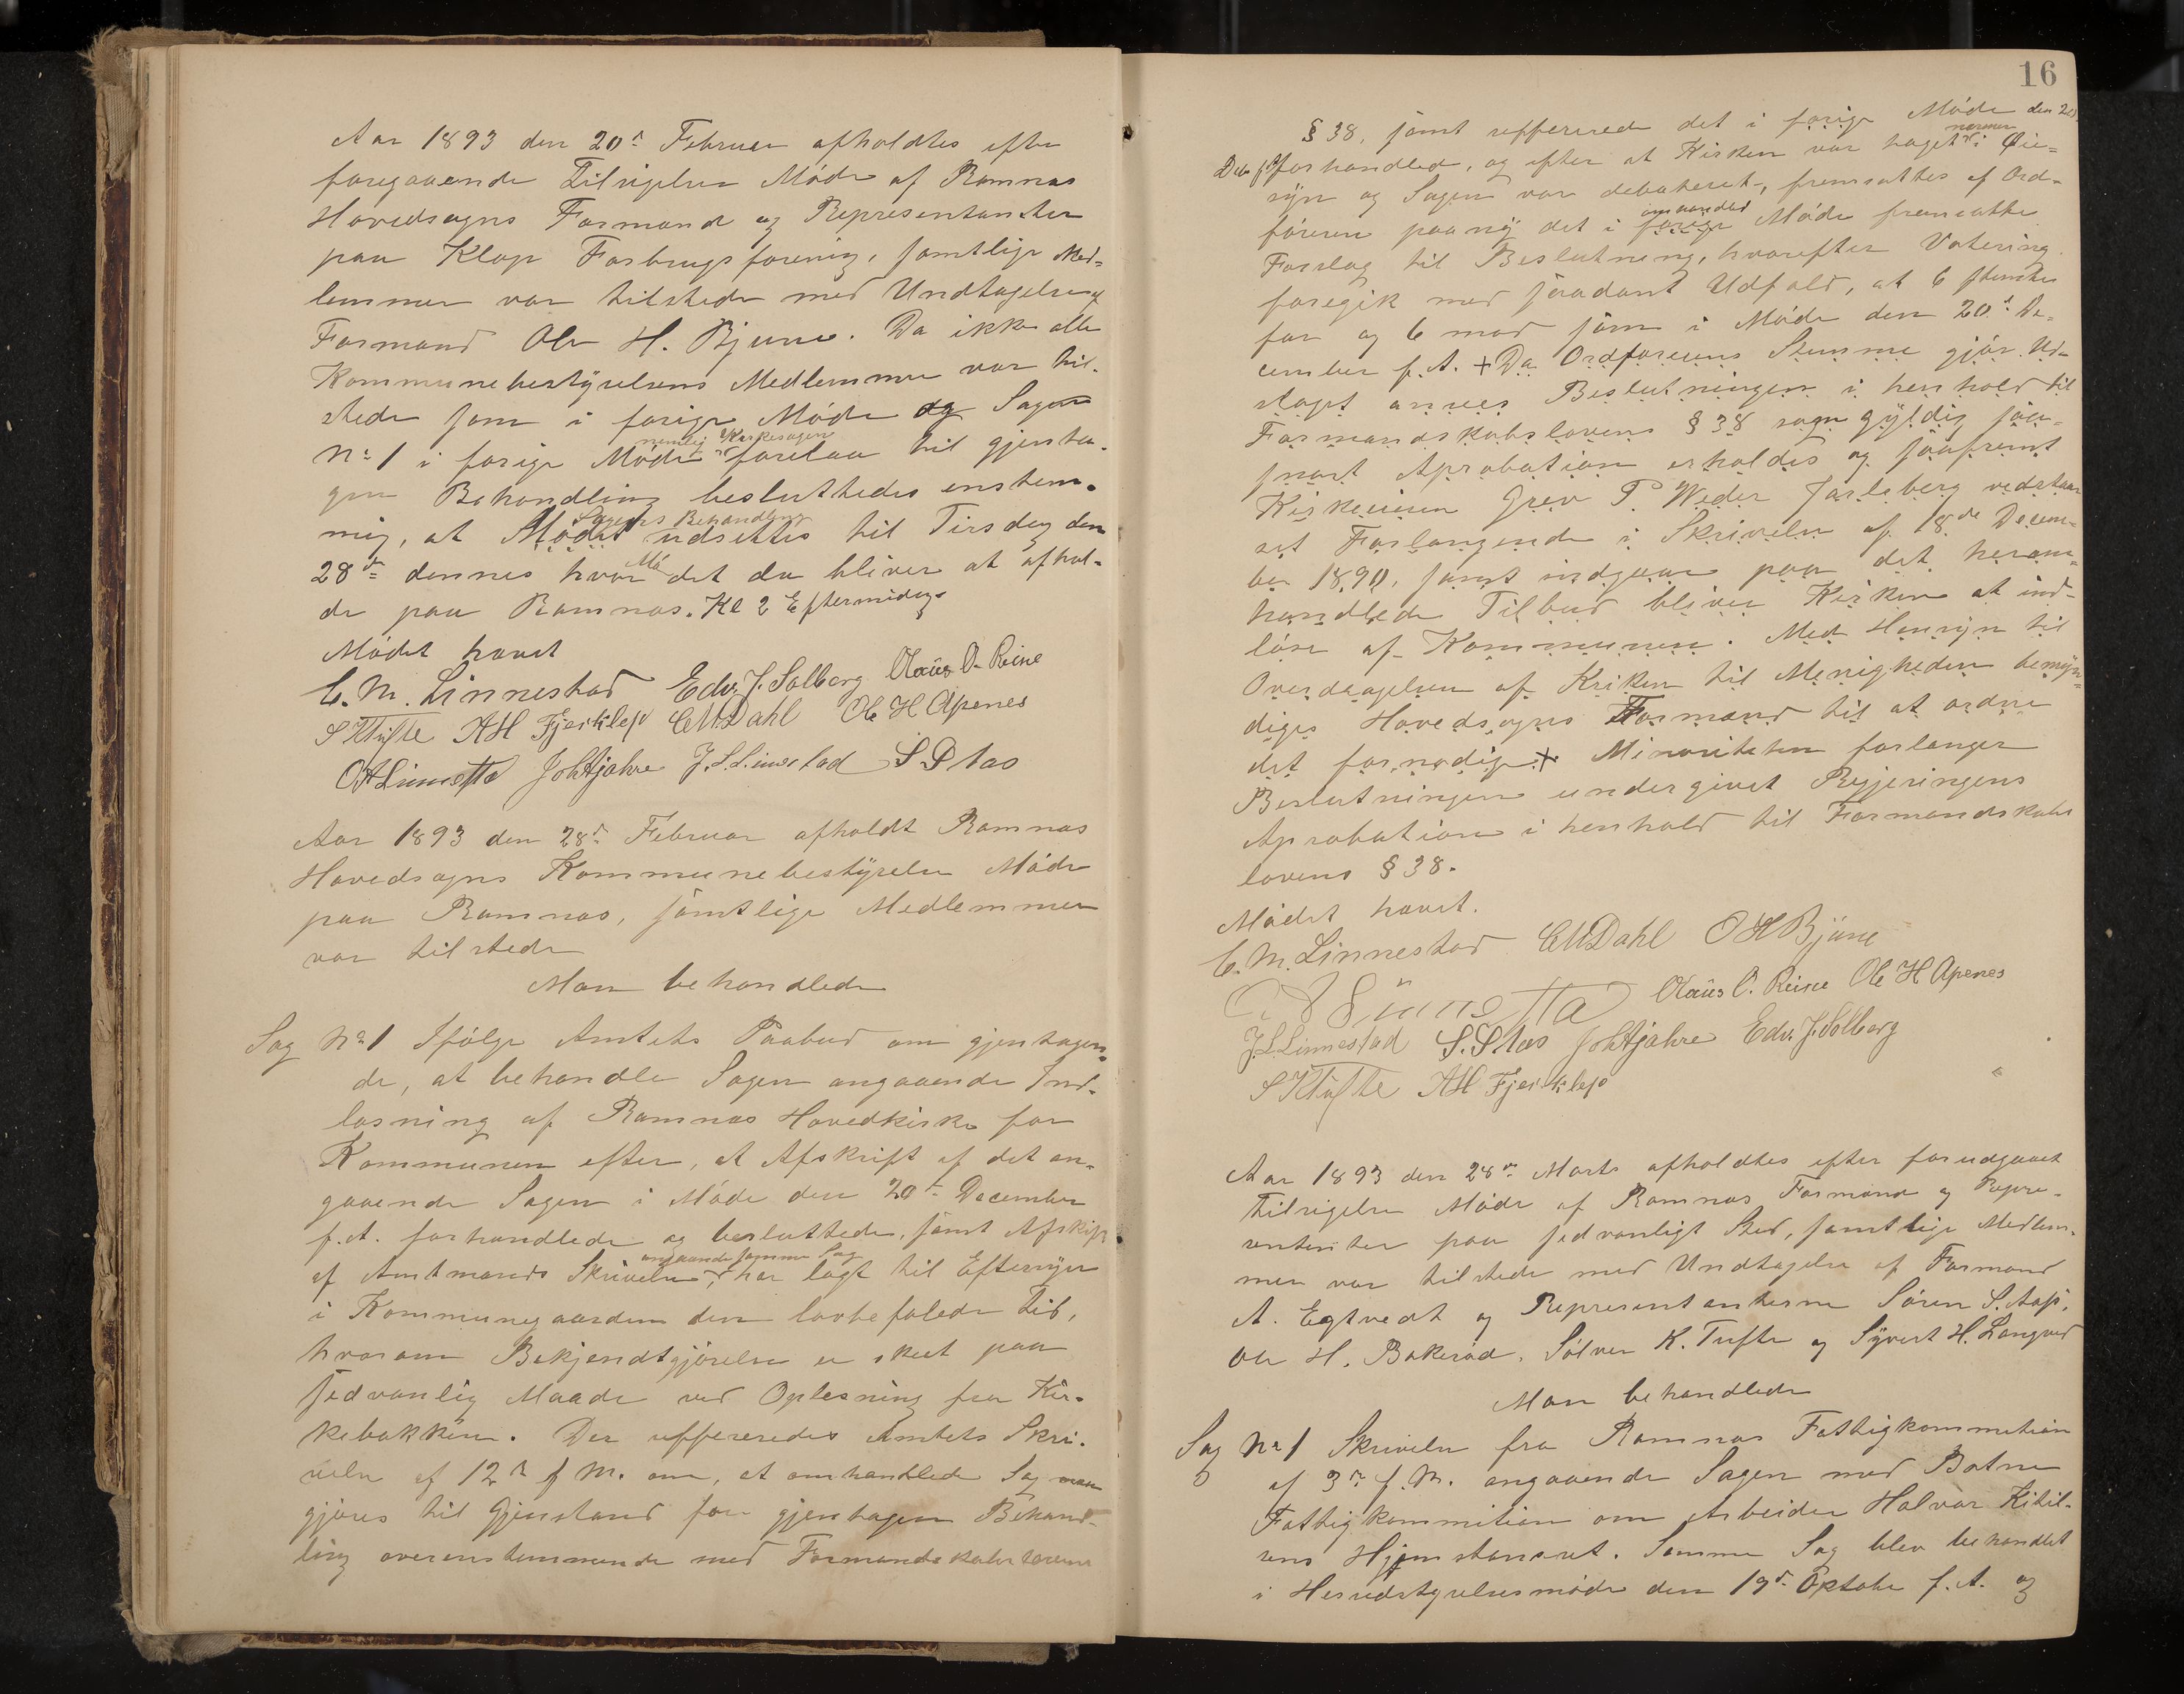 Aar 1893 den 20de Februar afholdtes efter
foregaaende Tilsigelse Møde af Ramnæs
Hovedsogns Formænd og Repræsentanter
paa Klop Forbrugsforening, samtlige Med-
lemmer var tilstede med Undtagelse af
Formand Ole H. Bjune. Da ikke alle
Kommunebestyrelsens Medlemmer var til-
stede som i forige Møde og Sagen
No 1 i forige Møde nemlig Kirkesagen forelaa til gjenta-
gen Behandling besluttedes enstem-
mig, at Mødet Sagens Behandling udsættes til Tirsdag den
28de dennes hvor Mødet da bliver at afhol-
de paa Ramnæs. Kl 2 Eftermidag.
Mødet hævet
C. M. Linnestad Edv. J. Solberg Olaüs O. Reine
S K Tufte A H Fjerkleje C M Dahl Ole H Apenes
Joh Hjahre J. L. Linnestad S. S. Aas
Aar 1893 den 28de Februar afholdt Ramnæs
Hovedsogns Kommunebestyrelse Møde
paa Ramnæs, samtlige Medlemmer
var tilstede
Man behandlede
Sag No 1 Ifølge Amtets Paabud om gjentagen-
de, at behandle Sagen angaaende Ind-
løsning af Ramnæs Hovedkirke for
Kommunen efter, at Afskrift af det an-
gaaende Sagen i Møde den 20de December
f. A. forhandlede og besluttede, samt Afskrift
af Amtmands Skrivelse angaaende samme Sag, har lagt til Eftersyn
i Kommunegaarden den lovbefalede Tid,
hvorom Bekjendtgjørelse er skeet paa
sedvanlig Maade ved Oplæsning fra Kir-
kebakken. Der reffereredes Amtets Skri-
velse af 12te f. M. om, at omhandlede Sag
gjøres til Gjenstand for gjentagen Behand-
ling overenstemmende med Formandskabslovens
16
§ 38, samt reffererede det i forige Møde den 20
Deb f A forhandlede, og efter at Kirken var taget nærmere i Øie-
syn og Sagen var debateret, fremsattes af Ord-
føreren paany det i forige omhandlede Møde fremsatte
Forslag til Beslutning, hvorefter Votering
foregik med saadant Udfald, at 6 stemte
for og 6 mod som i Møde den 20de De-
cember f. A. + Da Ordførerens Stemme gjør Ud-
slaget ansees Beslutningen i henhold til
Formandskabslovens § 38 som gyldig saa-
snart Aprobation erholdes og saafremt
Kirkeeieren Grev P. Wedel Jarlsberg vedstaar
sit Forlangende i Skrivelse af 18de Decem-
ber 1890, samt indgaar paa det herom-
handlede Tilbud bliver Kirken at ind-
løse af Kommunen. Med Hensyn til
Overdragelsen af Kirken til Menigheden bemyn-
diges Hovedsogns Formænd til at ordne
det fornødige + Minoriteten forlanger
Beslutningen undergivet Regjeringens
Aprobation i henhold til Formandskabs
lovens § 38.
Mødet hævet.
C. M. Linnestad C M Dahl O H Bjüne
Olaüs O. Reine Ole H Apenes
J. L. Linnestad S. S. Aas Joh Hjahre Edv. J. Solberg
S K Tufte A H Fjerkleje
Aar 1893 den 28de Marts afholdtes efter forudgaaet
Tilsigelse Møde af Ramnæs Formænd og Repræ-
sentanter paa sedvanligt Sted, samtlige Medlem-
mer var tilstede med Undtagelse af Formand
A. Egtvedt og Repræsentanterne Søren S. Aas,
Ole H. Bakerød, Sølver K. Tufte og Syvert H. Langved
Man behandlede
Sag No 1 Skrivelse fra Ramnæs Fattigkommition
af 3de f. M. angaaende Sagen med Botne
Fattigkommition om Arbeider Halvor Kitil-
sens Hjemstavnsret. Samme Sag blev behandlet
i Heredstyrelsesmøde den 19de Oktober f. A. og